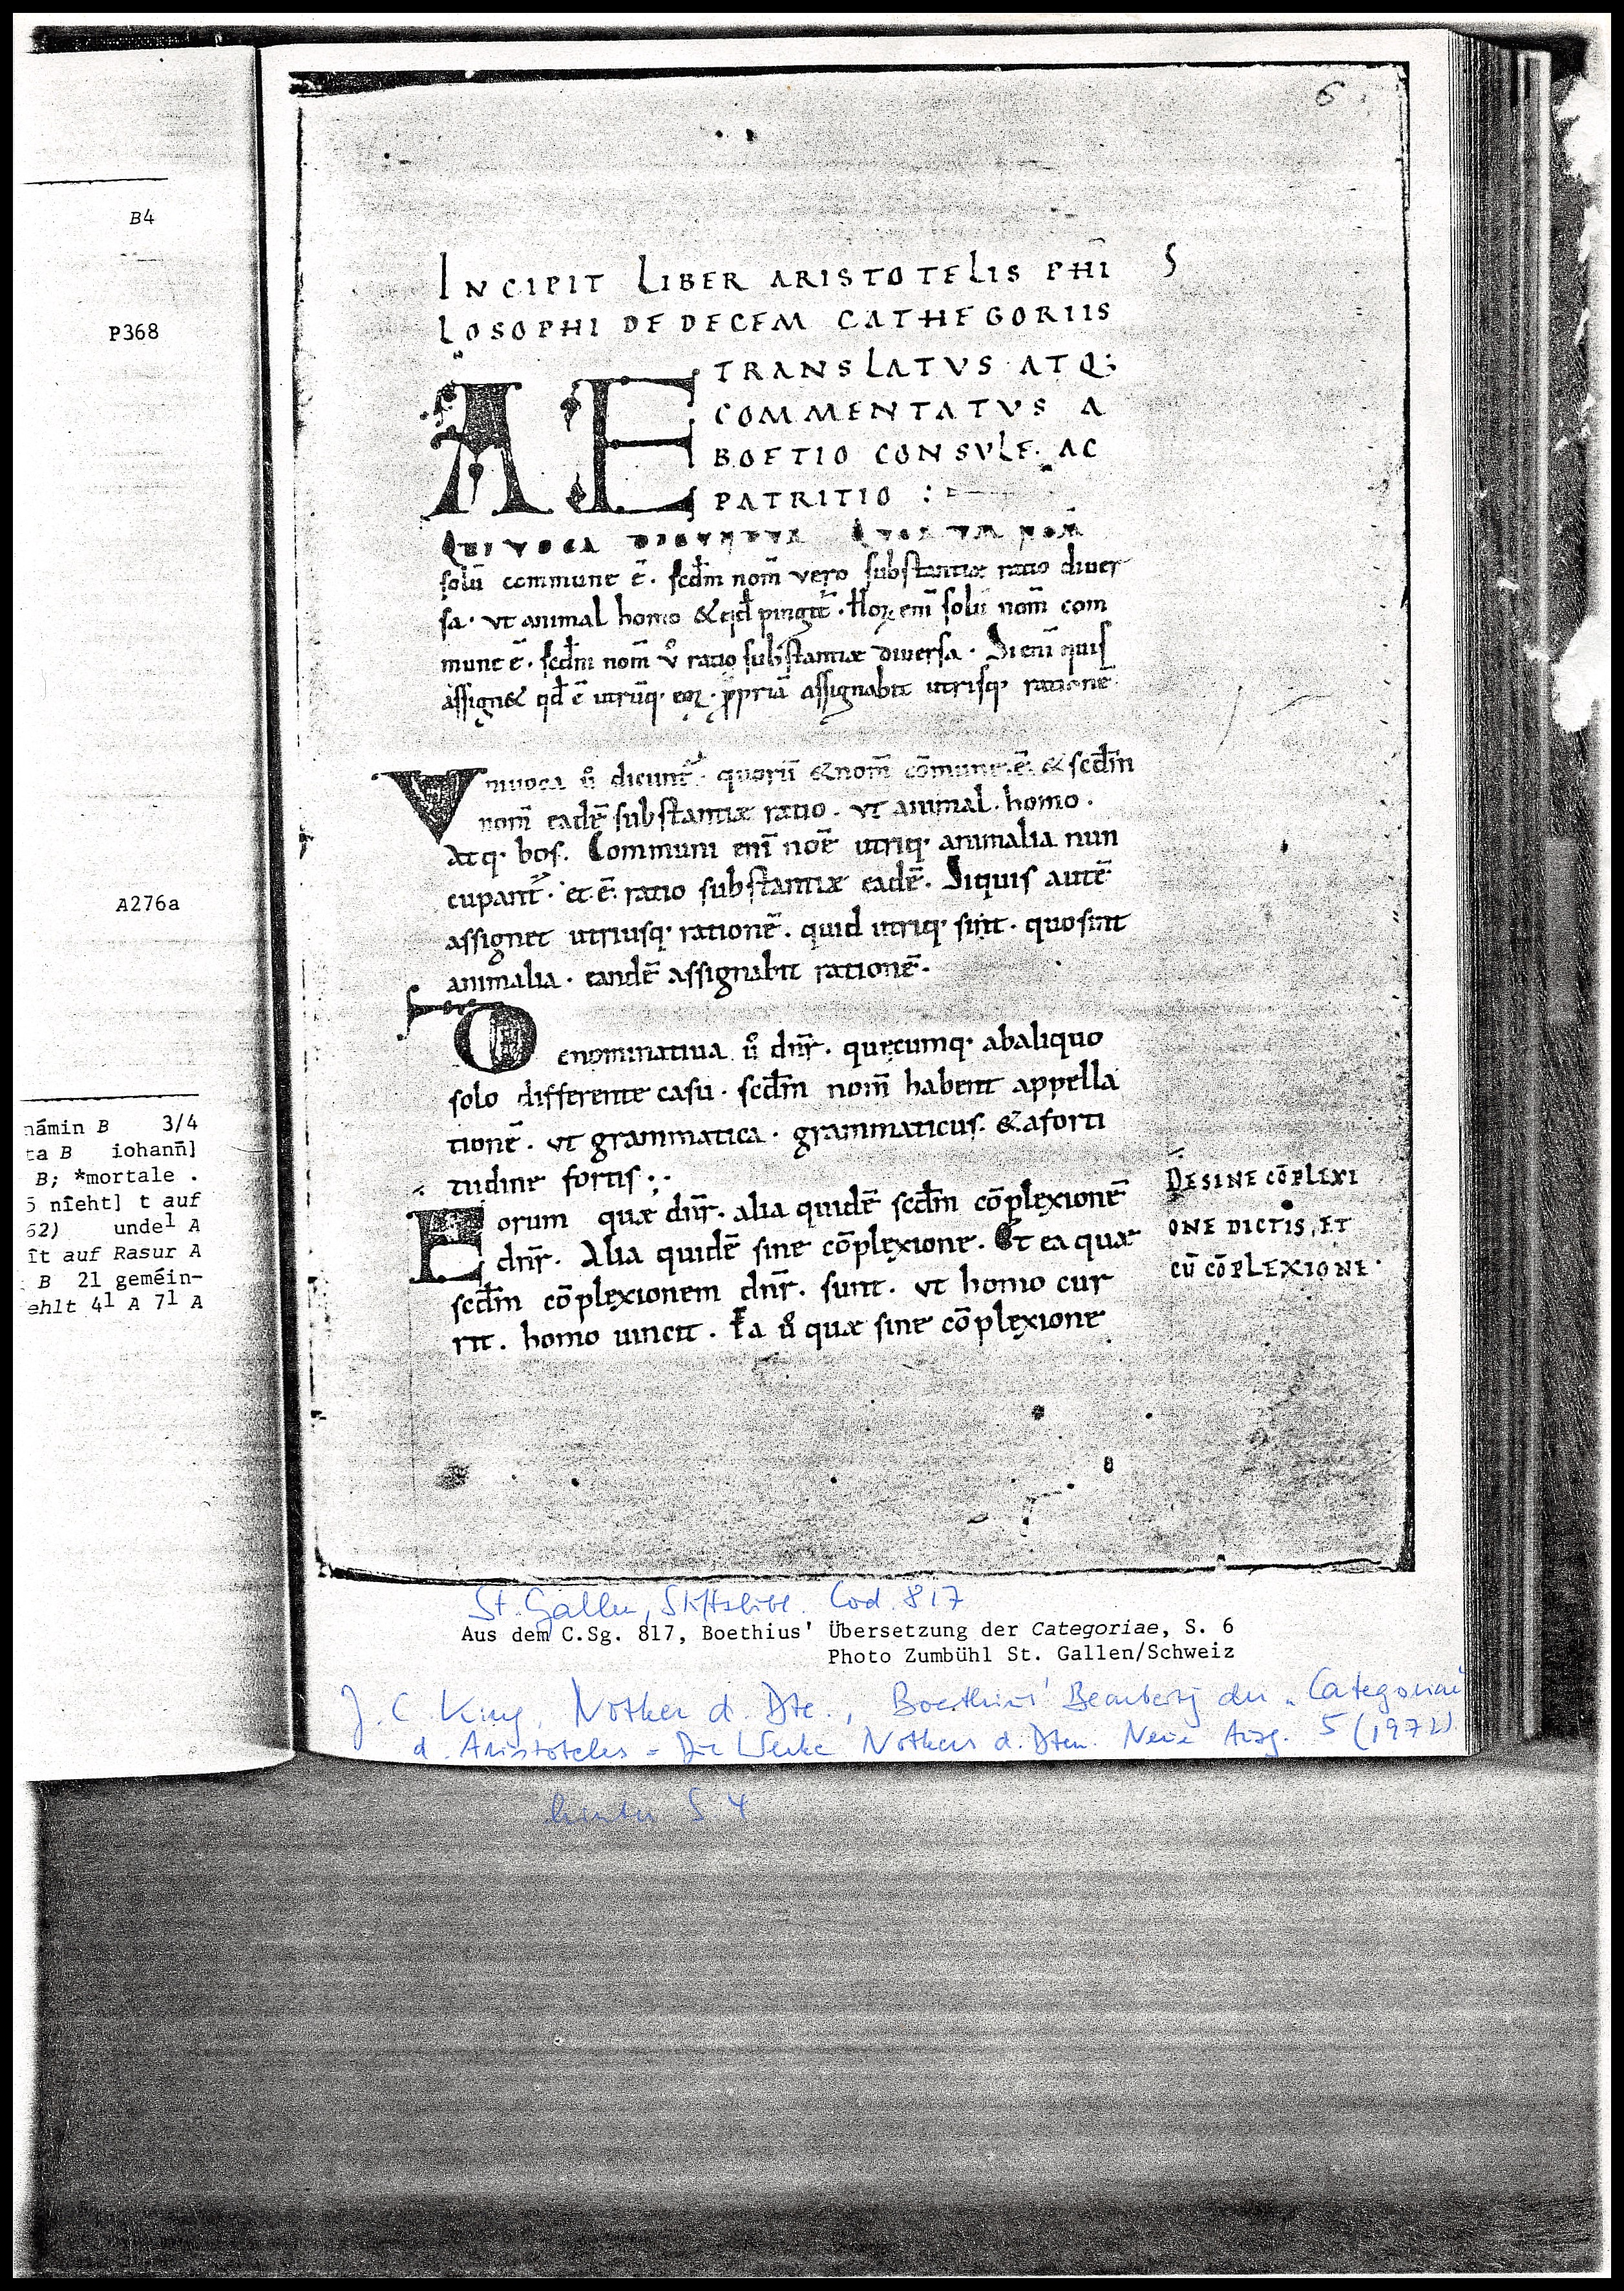 B4
P368
A276a
námin B 3/4
ta B iohann̄]
B; *mortale .
5 nîeht] t auf
62) unde¹ A
ît auf Rasur A
B 21 geméin-
ehlt 4¹ A 7¹ A
6
INCIPIT LIBER ARISTOTELIS PHI S
LOSOPHI DE DECEM CATHEGORIIS
TRANSLATVS ATQ;
COMMENTATVS A
BOETIO CONSVLE. AC
PATRITIO :
AE
QUIVOCA DICUNTUR QUORUM NOM̄
solū commune ē. scd̄m nom̄ vero substantiæ ratio diuer
sa. vt animal homo & qd̄ pingit̄. Hoꝝ eni̅ solū nom̄ com
mune ē. scd̄m nom̄ v̊ ratio substantiæ diuersa. Si eni̅ quis
assign& qd̄ ē utrūq. eoꝝ. ꝓpriā assignabit utrisq. rationē.
Vniuoca v̊ dicunt᷒. quorū & nom̄ cōmune. ē. & scd̄m
nom̄ eadē substantiæ ratio. vt animal. homo.
Atq. bos. Communi eni̅ noē utriq. animalia nun
cupant᷒. et. ē. ratio substantiæ eadē. Siquis autē
assignet utriusq. rationē. quid utriq. sint. quo sint
animalia. eandē assignabit rationē.
Denominatiua v̊ dnr̄. quęcumq. abaliquo
solo differente casu. scd̄m nom̄ habent appella
tionē. vt grammatica. grammaticus. & aforti
tudine fortis;.
Eorum quæ dnr̄. alia quidē scd̄m cōplexionē
dnr̄. Alia quidē sine cōplexione. Et ea quæ
scd̄m cōplexionem dnr̄. sunt. vt homo cur
rit. homo uincit. Ea v̊ quæ sine cōplexione
DE SINE CŌPLEXI
ONE DICTIS, ET
CŪ CŌPLEXIONE.
St. Gallen, Stiftsbibl. Cod. 817
Aus dem C.Sg. 817, Boethius' Übersetzung der Categoriae, S. 6
Photo Zumbühl St. Gallen/Schweiz
J. C. King, Notker d. Dte., Boethius' Bearbeitg der „Categoriae"
d. Aristoteles = Die Werke Notkers d. Dten. Neue Ausg. 5 (1972)
hinter S 4